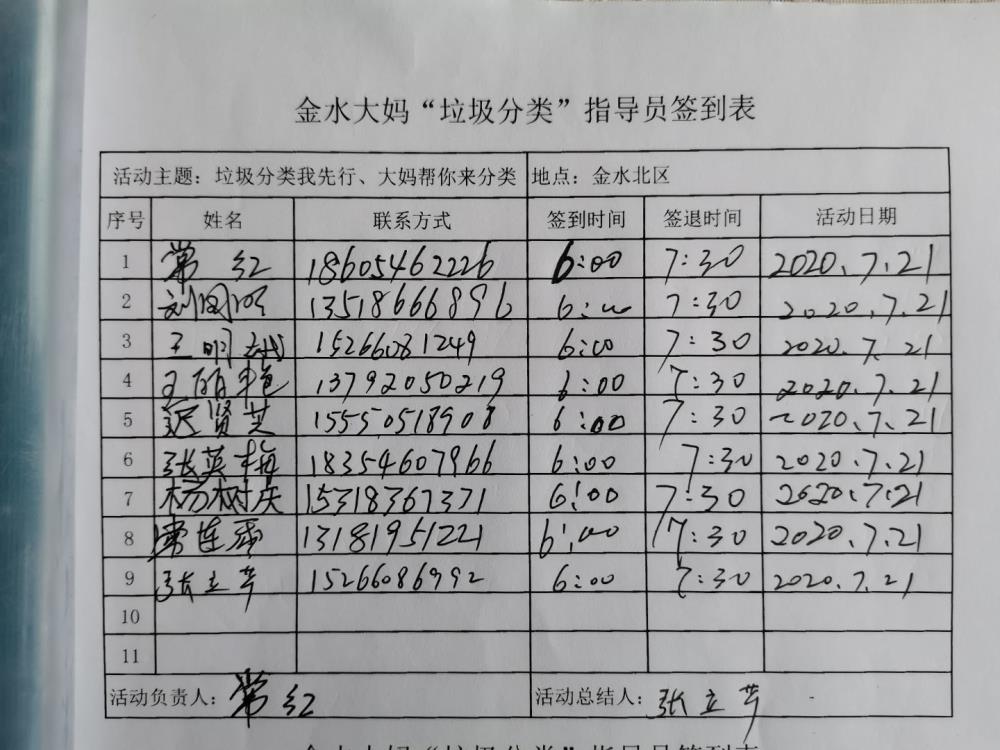 金水大妈“垃圾分类”指导员签到表
活动主题：垃圾分类我先行、大妈帮你来分类 地点：金水北区
序号 姓名 联系方式 签到时间 签退时间 活动日期
1 常红 18605462226 6:00 7:30 2020.7.21
2 刘国 13518666896 6:00 7:30 2020.7.21
3 王明 15266081249 6:00 7:30 2020.7.21
4 王丽艳 13792050219 6:00 7:30 2020.7.21
5 迟贤芝 15550518908 6:00 7:30 2020.7.21
6 张英梅 18354607966 6:00 7:30 2020.7.21
7 杨树庆 15318367371 6:00 7:30 2020.7.21
8 常连香 13181951221 6:00 7:30 2020.7.21
9 张立芹 15266086992 6:00 7:30 2020.7.21
10
11
活动负责人：常红 活动总结人：张立芹
金水大妈“垃圾分类”指导员签到表